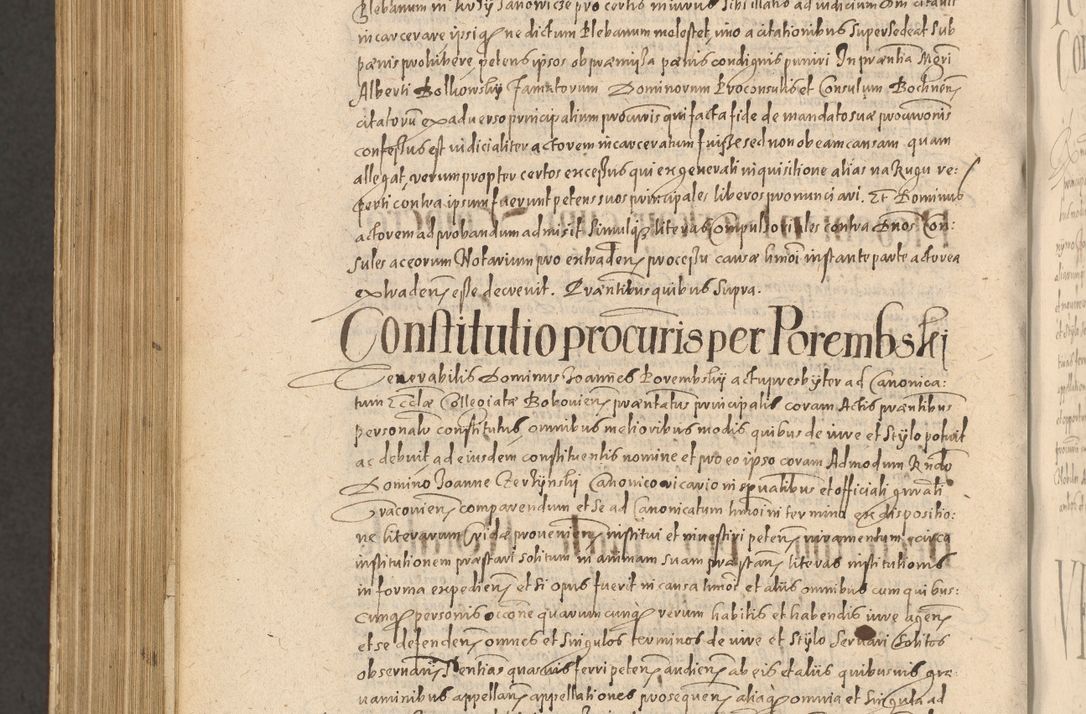 incarcerare ipsiq ne dictum Plebanum molestet, imo a citationibus supersedeat sub
pænis prohibere petens ipsos ob præmissa pænis condignis puniri In præntia Mgri
Alberti Bolkowsky Famatorum Dominorum Proconsulis et Consulum Bochnen
citatoru ex adverso principalium procuris qui facta fide de mandato suæ procuronis
confessus est iudicialiter actorem incarceratum fuisse sed non ob eam causam quam
allegat, verum propter certos excessus qui ex generali inquisitione alias na Rugu re:
perti contra ipsum fuerunt petens suos principales liberos pronunciari. Et Dominus
actorem ad probandum admisit simulq literas compulsoriales contra Dnos Con:
sules ac eorum Notarium pro extraden processu causæ hmoi instante parte actorea
extraden esse decrevit. Præntibus quibus supra.
Constitutio procuris per Porembski
Venerabilis Dominus Joannes Porembsky actu presbyter ad Canonica:
tum Ecclæ Collegiatæ Bobovien præntatus principalis coram Actis præntibus
personalr constitutus, omnibus melioribus modis quibus de iure et stylo potuit
ac debuit ad eiusdem constituentis nomine et pro eo ipso coram Admodum Rndo
Domino Joanne Zerzynski Canonico vicario in spualibus et officiali gnrali
Cracovien comparendum et se ad Canonicatum hmoi in termino ex dispositio:
ne literarum Cridæ provenien institui et investiri peten iuramentum circa
institutionem præstari solitum in animam suam præstan literas institutionis
in forma expedien et si opus fuerit in causa hmoi et aliis omnibus cum quibus:
cunq personis occone quarumcunq rerum habitis et habendis iure agen
et se defenden omnes et singulos terminos de iure et stylo servari solitos
observan Sentias quasvis ferri peten audien ab eis et aliis quibusvis gra:
vaminibus appellan appellationes prosequen aliaq omnia et singula ad